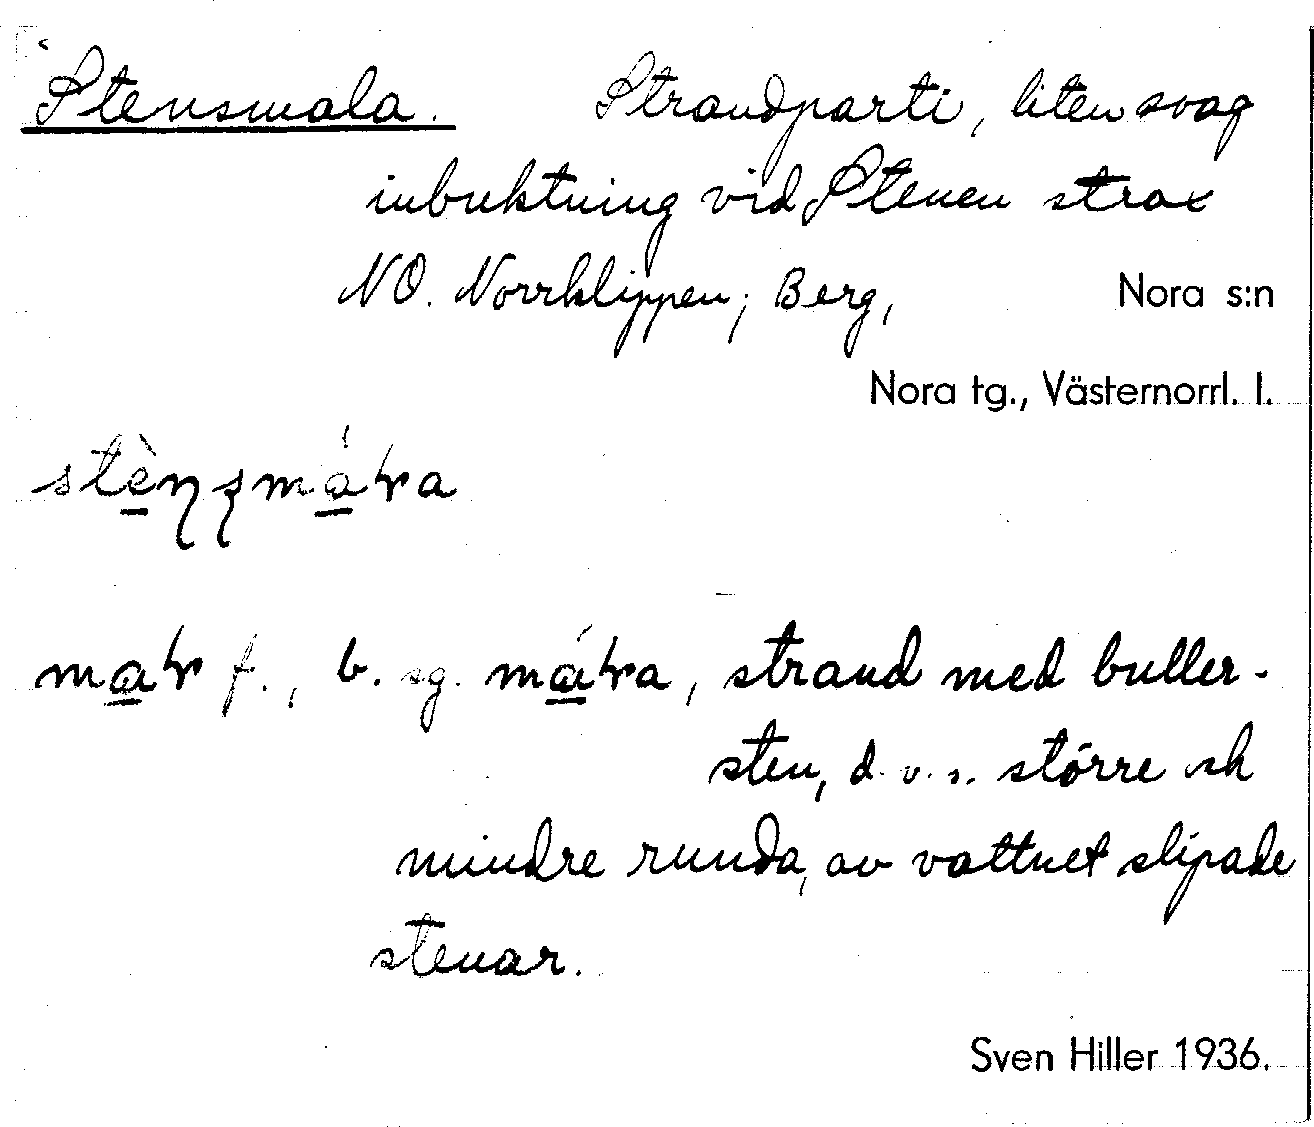 Stensmala. Strandparti, liten svag
inbuktning vid Stenen strax
NO. Norrklippen, Berg, Nora s:n
Nora tg., Västernorrl. l.
f., b. sg. strand med buller-
sten, d. v. s. större och
mindre runda, av vattnet slipade
stenar.
Sven Hiller 1936.